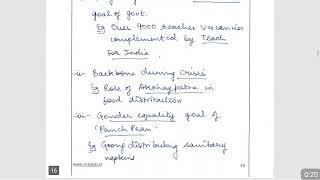 goal of govt.
Eg Over 9000 teacher vacancies
complemented by Teach
For India.
ii- Backbone during crisis
Eg Role of Akshaypatra in
food distribution
iii- Gender equality goal of
'Panch Pran'
Eg Goonj distributing sanitary
napkins
16
0:20